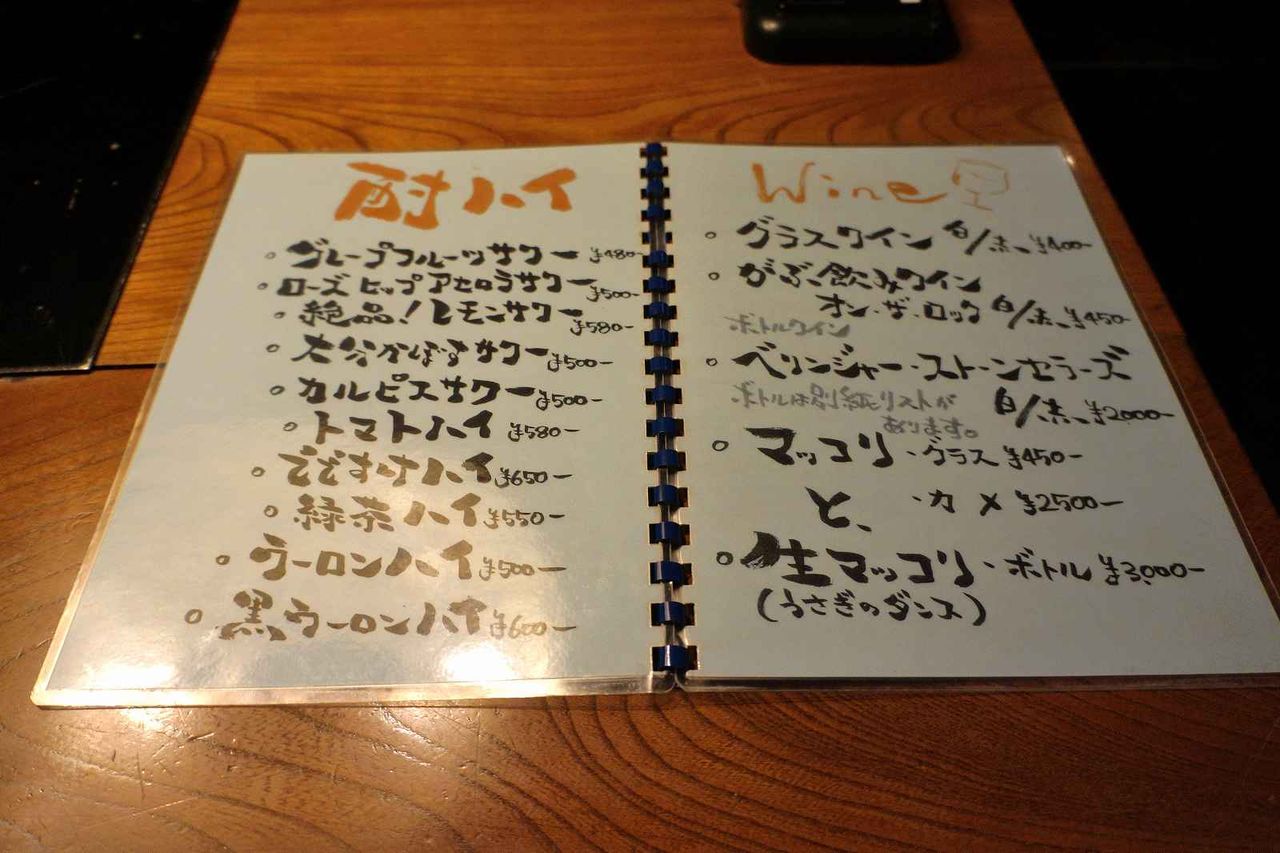 酎ハイ
。グレープフルーツサワー ¥480-
。ローズヒップアセロラサワー ¥500-
。絶品!レモンサワー ¥580-
。大分かぼすサワー ¥500-
。カルピスサワー ¥500-
。トマトハイ ¥580-
。でですけハイ ¥650-
。緑茶ハイ ¥550-
。ウーロンハイ ¥500-
。黒ウーロンハイ ¥600-
Wine
。グラスワイン 白/赤 ¥400-
。がぶ飲みワイン
オン・ザ・ロック 白/赤 ¥450-
ボトルワイン
。ベリンジャー・ストーンセラーズ
白/赤 ¥2000-
ボトルは別紙リストが
あります。
。マッコリ ・グラス ¥450-
と、 ・カメ ¥2500-
。生マッコリ・ボトル ¥3,000-
(うさぎのダンス)